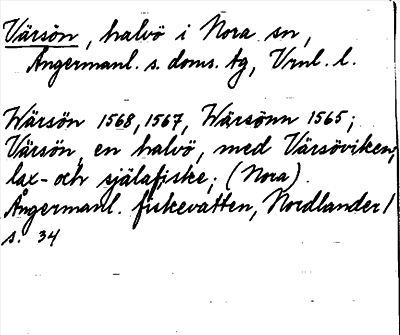 Värsön, halvö i Nora sn,
Ångermanl. s. doms. tg, Vrnl. l.
Wärsön 1568, 1567, Wärsönn 1565;
Värsön, en halvö, med Värsöviken;
lax- och själafiske; (Nora).
Ångermanl. fiskevatten, Nordlander 1
s. 34